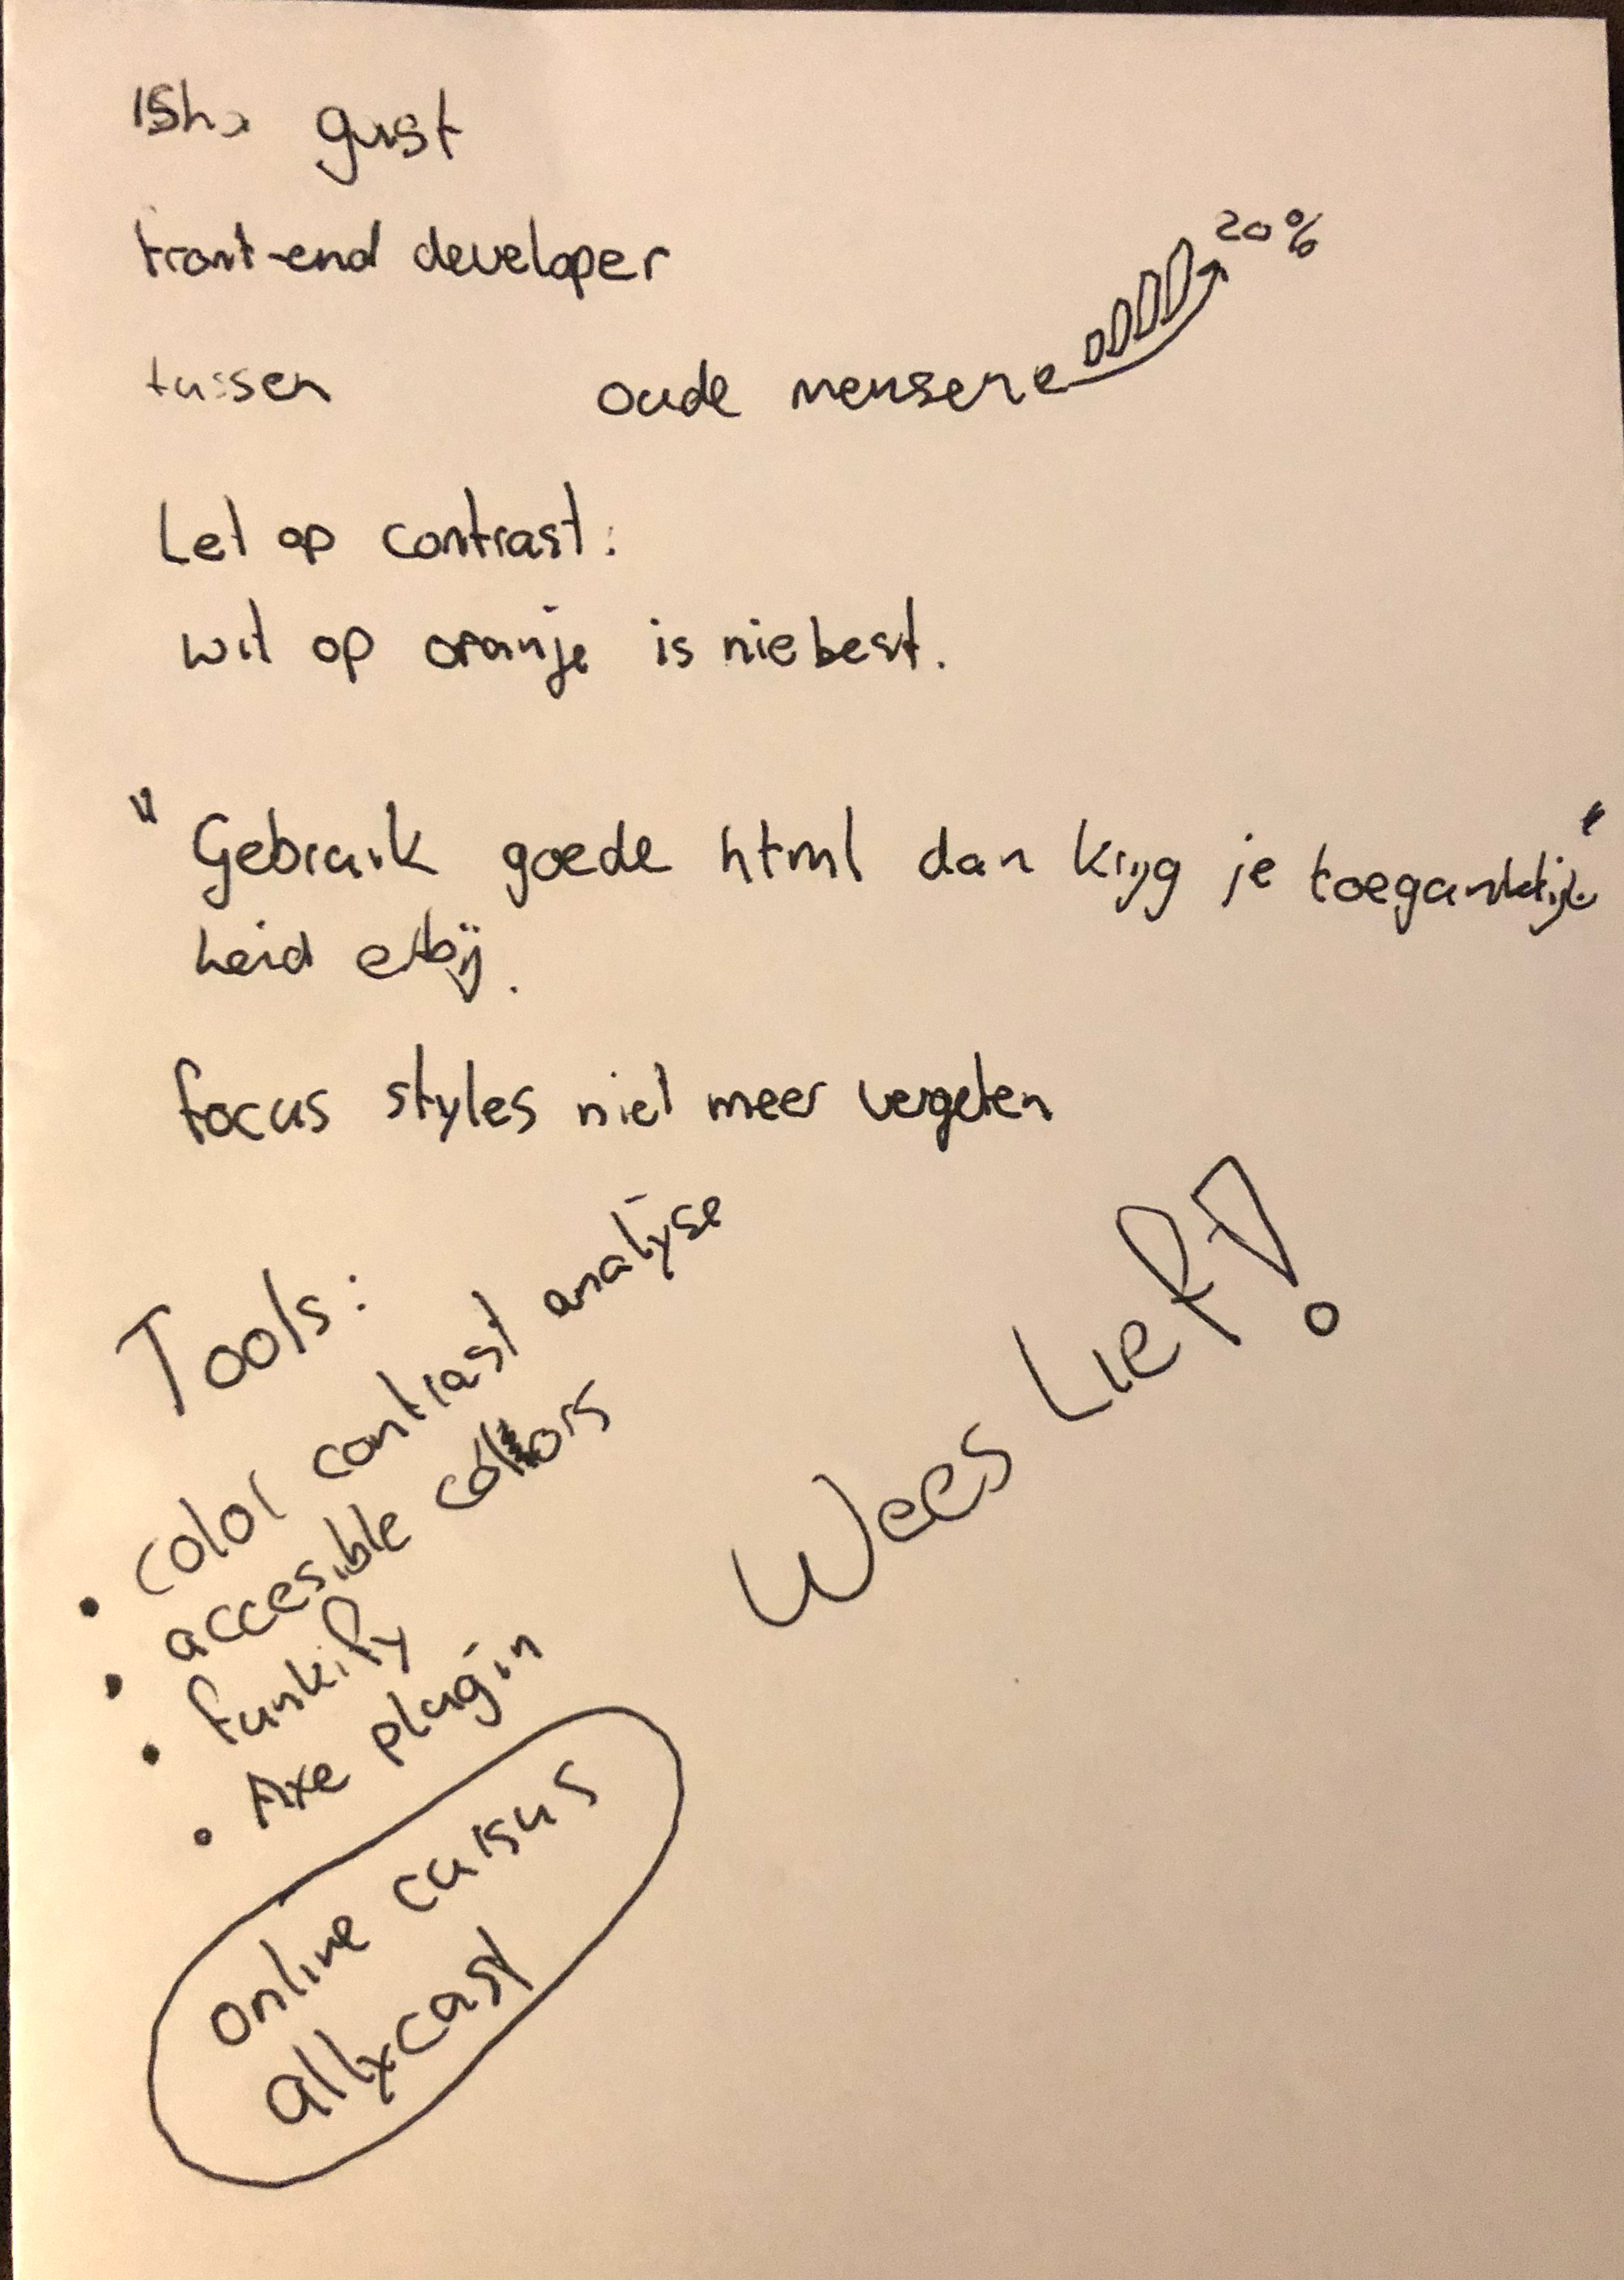 Isha gust
front-end developer
20%
tussen oude mensen
Let op contrast:
wit op oranje is nie best.
"Gebruik goede html dan krijg je toegankelijk"
heid erbij.
focus styles niet meer vergeten
Tools:
• color contrast analyse
• accesible colors
• funkify
• Axe plugin
Wees Lief!
online cursus
a11ycast